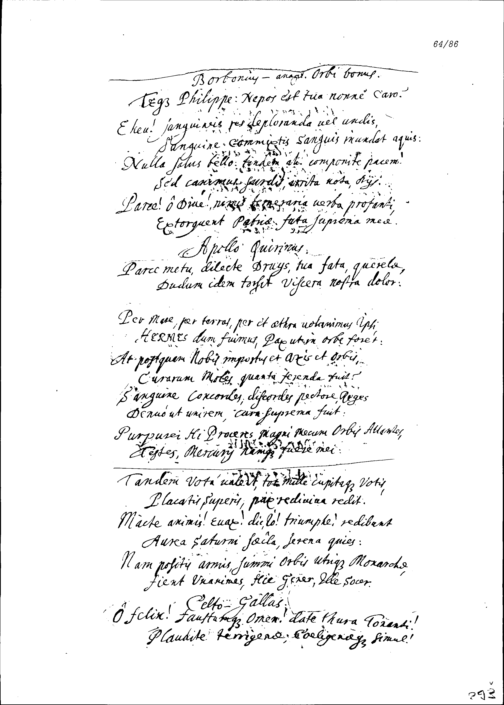 64/86
Borbonius – anagr. Orbi bonus.
Teqz Philippe: Nepos est tua nonne Caro?
Eheu! sanguinis res deploranda vel undis,
Sanguine commistis Sanguis mundat aquis:
Nulla salus bello: tandem ah componite pacem!
Sed canimus surdis, irrita nota
Parce! ô Dive, nimis temeraria verba profanti,
Extorquent Patriæ fata suprema meæ.
Apollo Quirinus.
Parce metu, dilecte Druys, tua fata, querelæ,
Dudum idem torsit Viscera nostra dolor:
Per Mare, per terras, per et æthra volavimus ipsi,
HERMES dum fuimus, Pax ut in orbe foret:
At postquam Nobis impostus et axis et Orbis,
Curarum Moles quanta ferenda fuit?
Sanguine Concordes, discordes pectore Reges
Denuo ut unirem, cura suprema fuit:
Purpurei Hi Proceres magni mecum Orbis Atlantes,
Testes, Mercurij namqz fuere mei:
Tandem Vota valent tot mille cupitaqz Votis
Placatis superis, pax rediviva redit.
Macte animis! Euax! dic Io! triumphe! redibunt
Aurea Saturni sæcla, serena quies:
Nam positis armis summi Orbis utriqz Monarchæ
fient Unanimes, Hic Gener, Ille Socer.
Celto-Gallas.
Ô felix! Faustumqz Omen! date thura Tonanti!
Plaudite terrigenæ; Cœligenæqz simul!